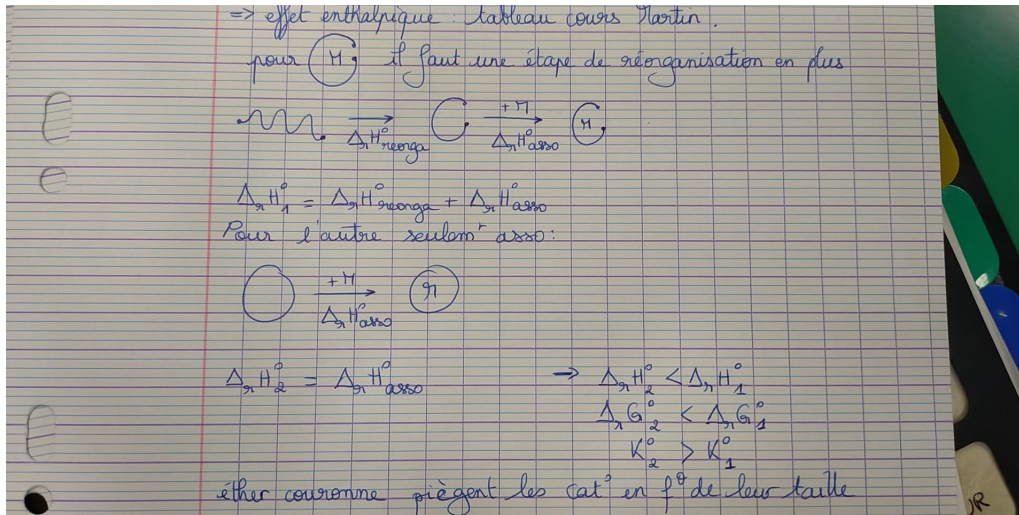 => effet enthalpique : tableau cours Martin.
pour (M) il faut une étape de réorganisation en plus
ΔrH°reorga +M ΔrH°asso M
ΔrH°1 = ΔrH°reorga + ΔrH°asso
Pour l'autre seulemt asso:
+M ΔrH°asso M
ΔrH°2 = ΔrH°asso => ΔrH°2 < ΔrH°1
ΔrG°2 < ΔrG°1
K°2 > K°1
éther couronne piègent les cat° en f° de leur taille
R